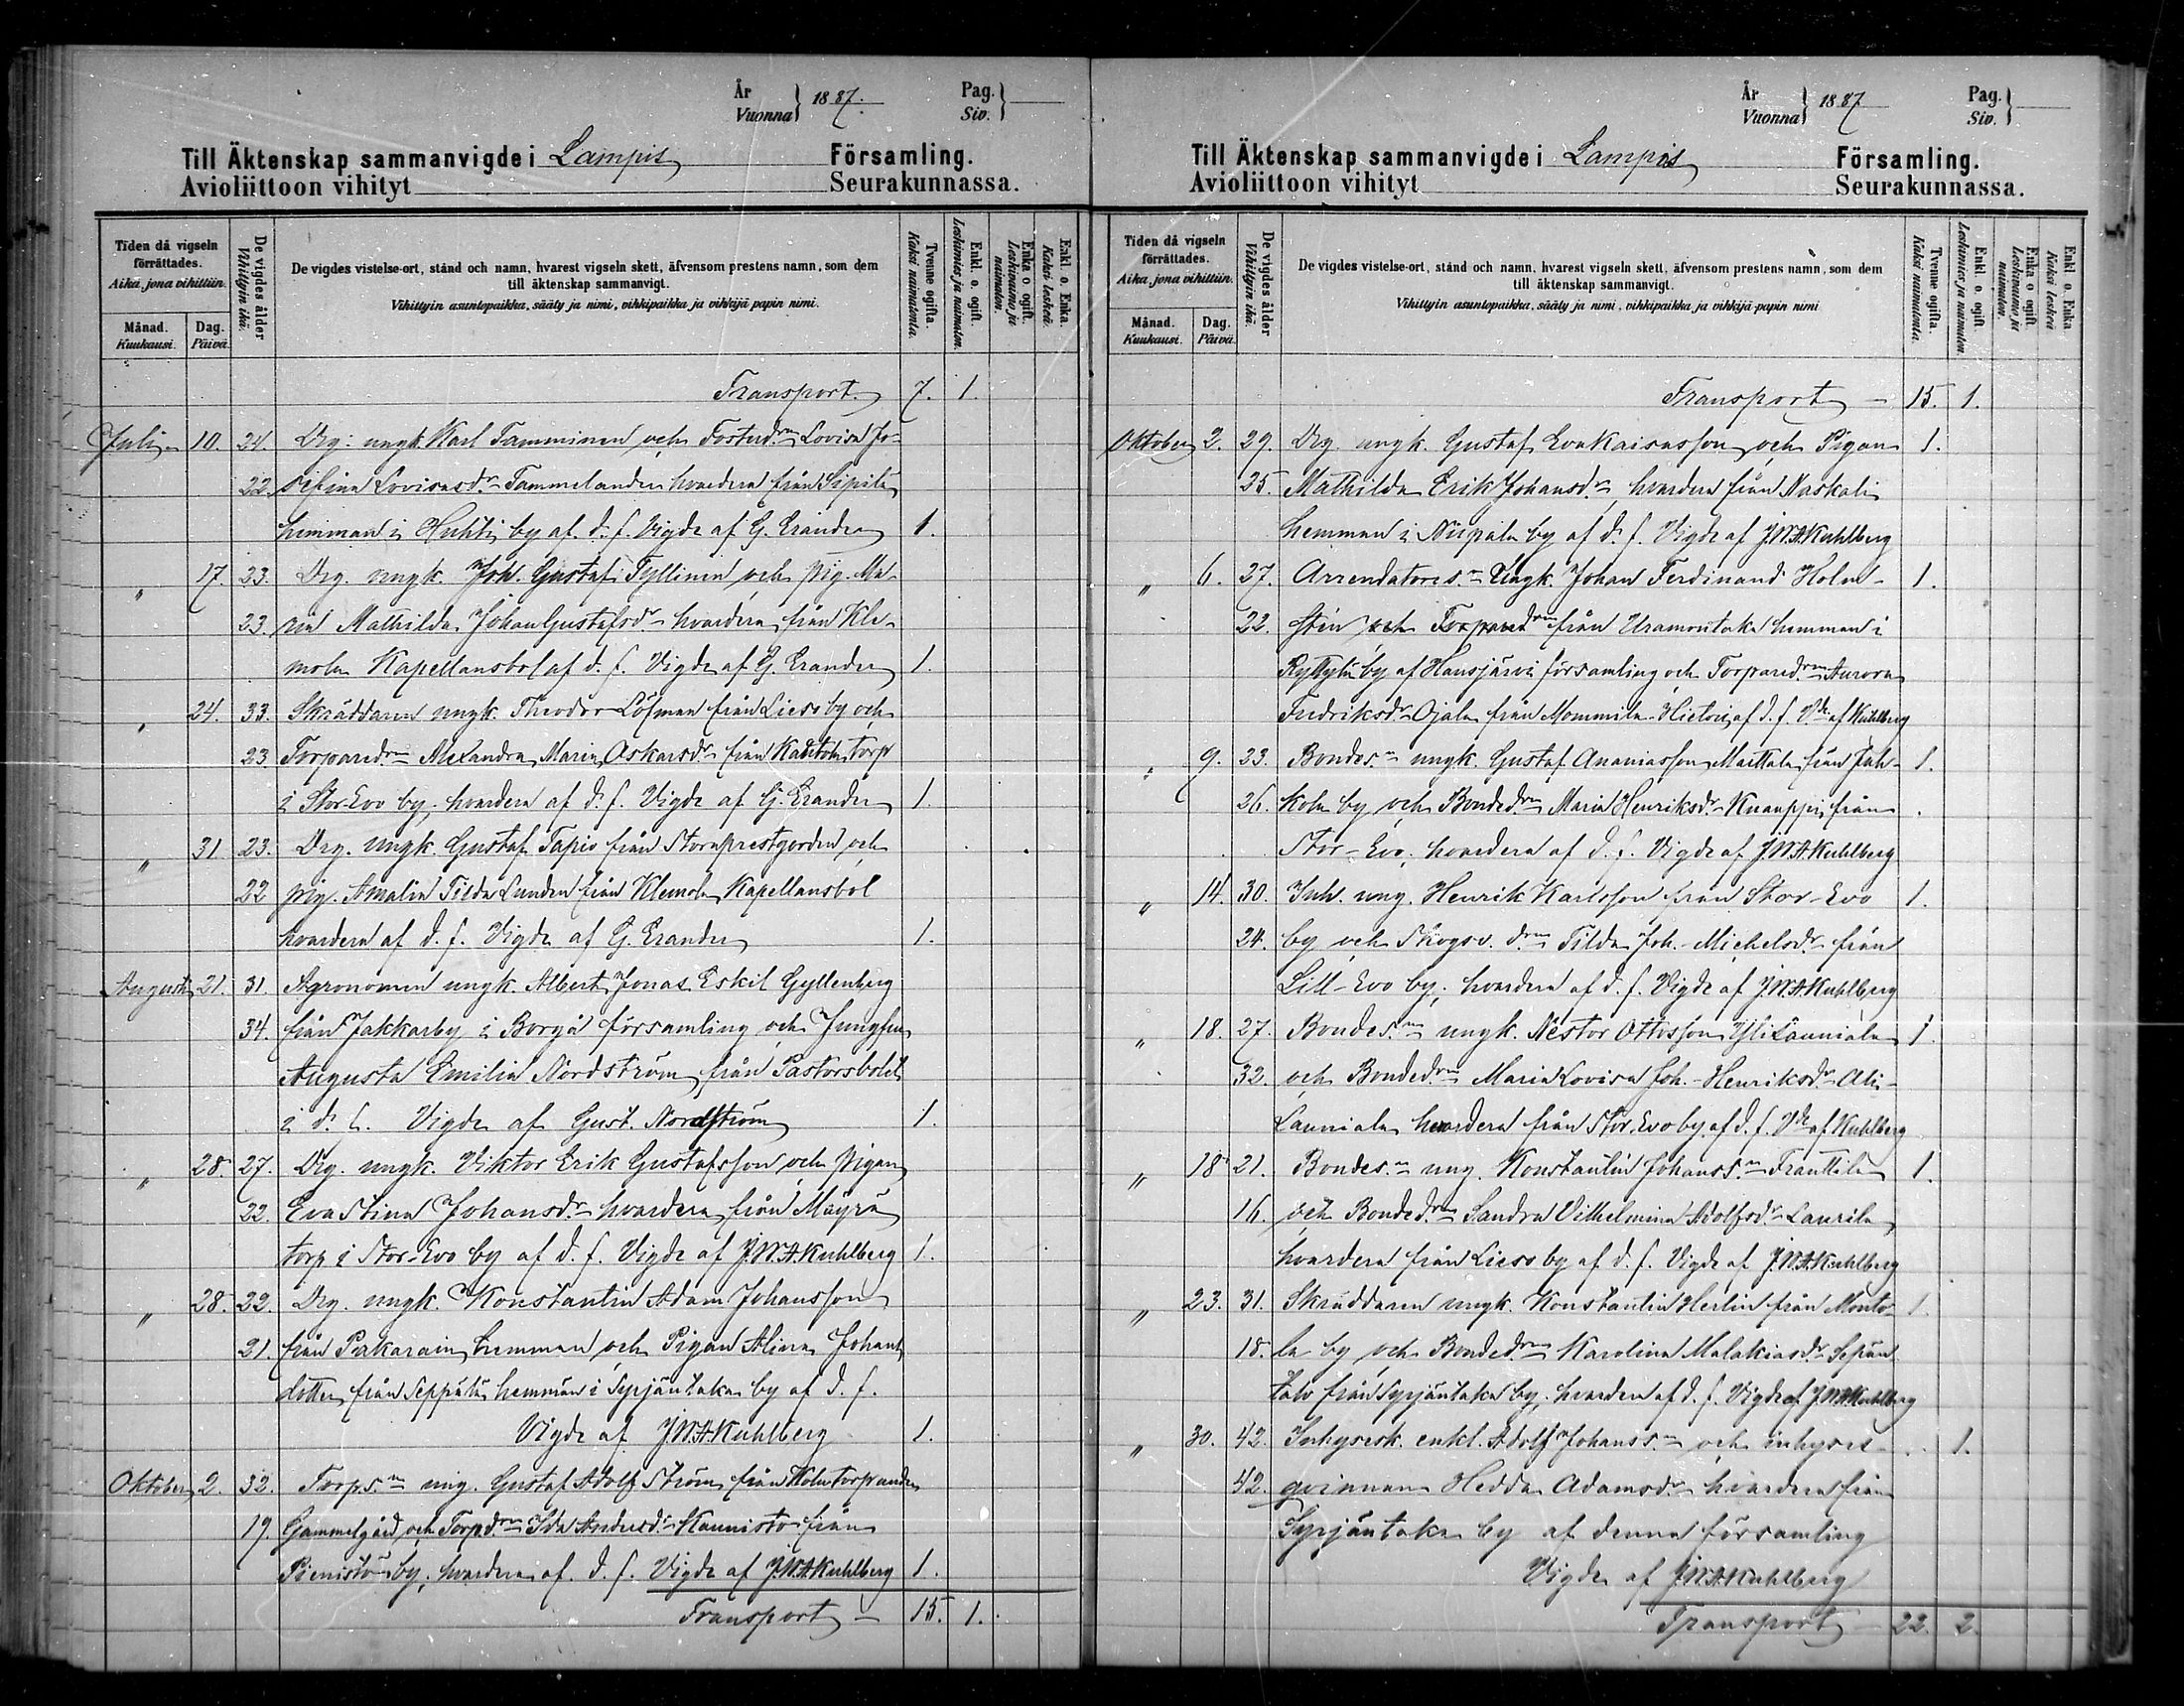 År
Vuonna } 1887.
Pag.
Siv. }
Till Äktenskap sammanvigde i Lampis Församling.
Avioliittoon vihityt Seurakunnassa.
Tiden då vigseln förrättades.
Aika, jona vihittiin.
Månad.
Kuukausi.
Dag.
Päivä.
De vigdes ålder
Vihittyin ikä.
De vigdes vistelse-ort, stånd och namn, hvarest vigseln skett, äfvensom prestens namn, som dem
till äktenskap sammanvigt.
Vihittyin asuntopaikka, sääty ja nimi, vihkipaikka ja vihkijä papin nimi.
Tvenne ogifta.
Kaksi naimatonta.
Enkl. o. ogift.
Leskimies ja naimaton.
Enka o ogift.
Leskivaimo ja naimaton.
Enkl. o. Enka.
Kaksi leskeä.
Transport. 7. 1.
Juli 10. 24. Drg. ungk. Karl Tamminen och Fosterdrn Lovisa Jo-
22. sefina Lovisasdr Tammelander hvardera från Sipilä
hemman i Huhti by af d. f. Vigde af G. Erander 1.
" 17. 23. Drg. ungk. Joh. Gustaf Tyllinen och pig. Ma-
23. ria Mathilda Johan Gustafsdr hvardera från Kle-
mola Kapellansbol af d. f. Vigde af G. Erander 1.
" 24. 33. Skräddaren ungk. Theodor Löfman från Lieso by och
23 Torparedrn Alexandra Maria Oskarsdr från torp
i Stor-Evo by, hvardera af d. f. Vigde af G. Erander 1.
" 31 23. Drg. ungk. Gustaf Tapio från Storaprestgården och
22 pig. Amalia Tilda Lunden från Klemola Kapellansbol
hvardera af d. f. Vigde af G. Erander 1.
Augusti 21. 31. Agronomen ungk. Albert Jonas Eskil Gyllenberg
34. från Jakkarby i Borgå församling och Jungfrun
Augusta Emilia Nordström från Pastorsbolet
i d. f. Vigde af Gust. Nordström 1.
" 28. 27. Drg. ungk. Viktor Erik Gustafsson och pigan
22. Eva Stina Johansdr hvardera från Mäyrä
torp i Stor-Evo by af d. f. Vigde af J.W.A. Kuhlberg 1.
" 28. 22. Drg. ungk. Konstantin Adam Johansson
21. från Pakarain hemman och Pigan Alina Johans
dotter från Seppälä hemman i Syrjäntaka by af d. f.
Vigde af J.W.A. Kuhlberg 1.
Oktober 2. 32. Torps.n ung. Gustaf Adolf Ström från torp under
19. Gammelgård och Torpdrn Ida Andersd. Kannisto från
by, hvardera af d. f. Vigde af J.W.A. Kuhlberg 1.
Transport 15. 1.
År
Vuonna } 1887
Pag.
Siv. }
Till Äktenskap sammanvigde i Lampis Församling.
Avioliittoon vihityt Seurakunnassa.
Tiden då vigseln förrättades.
Aika, jona vihittiin.
Månad.
Kuukausi.
Dag.
Päivä.
De vigdes ålder
Vihittyin ikä.
De vigdes vistelse-ort, stånd och namn, hvarest vigseln skett, äfvensom prestens namn, som dem
till äktenskap sammanvigt.
Vihittyin asuntopaikka, sääty ja nimi, vihkipaikka ja vihkijä-papin nimi
Tvenne ogifta.
Kaksi naimatonta.
Enkl. o. ogift.
Leskimies ja naimaton.
Enka o ogift.
Leskivaimo ja naimaton.
Enkl o. Enka
Kaksi leskeä
Transport 15. 1.
Oktober 2. 29. Drg. ungk. Gustaf Eva Kaisasson och Pigan 1.
25. Mathilda Erik Johansdr hvardera från Naskali
hemman i Niipala by af d. f. Vigde af J.W.A. Kuhlberg
" 6. 27. Arrendatores.n Ungk. Johan Ferdinand Holm- 1.
22. sten och Torparedrn från Uramontaka hemman i
Ryttylä by af Hausjärvi församling och Torparedrn Aurora
Fredriksdr Ojala från Mommila Hietois af d. f. Vde af Kuhlberg
" 9. 23. Bondes.n ungk. Gustaf Ananiasson Marttala från Jah- 1.
26. kola by och Bondedrn Maria Henriksdr Knaappi från
Stor-Evo, hvardera af d. f. Vigde af J.W.A. Kuhlberg
" 14. 30. Inh. ung. Henrik Karlsson från Stor-Evo 1.
24. by och Skogsv. drn Tilda Joh. Michelsdr från
Lill-Evo by, hvardera af d. f. Vigde af J.W.A. Kuhlberg
" 18. 27. Bondes.n ungk. Nestor Ottosson Yli Launiala 1
32. och Bondedrn Maria Lovisa Joh.-Henriksdr Ali-
Launiala hvardera från Stor-Evo by af d. f. Vde af Kuhlberg
" 18 21. Bondes.n ung. Konstantin Johanss.n Franttila 1.
16. och Bondedrn Sandra Vilhelmina Adolfsdr Laurila
hvardera från Lieso by af d. f. Vigde af J.W.A. Kuhlberg
" 23. 31. Skräddaren ungk. Konstantin Herlin från Monto- 1.
18. la by och Bondedrn Karolina Malakiasdr Sepän
talo från Syrjäntaka by, hvardera af d. f. Vigde af J.W.A. Kuhlberg
" 30. 42. Inhysesk. enkl. Adolf Johanss.n och inhyses- 1.
42. qvinnan Hedda Adamsdr hvardera från
Syrjäntaka by af denna församling
Vigde af J.W.A. Kuhlberg
Transport 22. 2.